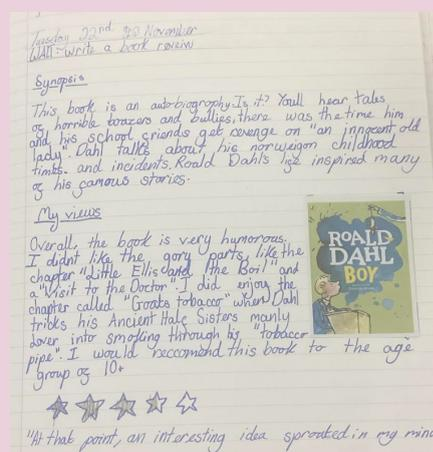 Tuesday 22nd November
WALT:-write a book reveiw
Synopsis
This book is an autobiography. Is it? Youll hear tales
of horrible boazers and bullies, there was the time him
and his school friends get revenge on "an innocent old
lady". Dahl talks about his norweigon childhood
times. and incidents. Roald Dahls life inspired many
of his famous stories.
My views
Overall, the book is very humorous.
I didnt like the gory parts, like the
chapter "Little Ellis and the Boil" and
a "Visit to the Doctor". I did enjoy the
chapter called "Goats tobacco" when Dahl
tricks his Ancient Half Sisters manly
lover into smoking through his "tobacco
pipe". I would reccomend this book to the age
group of 10+
ROALD
DAHL
BOY
"At that point, an interesting idea sprouted in my mind